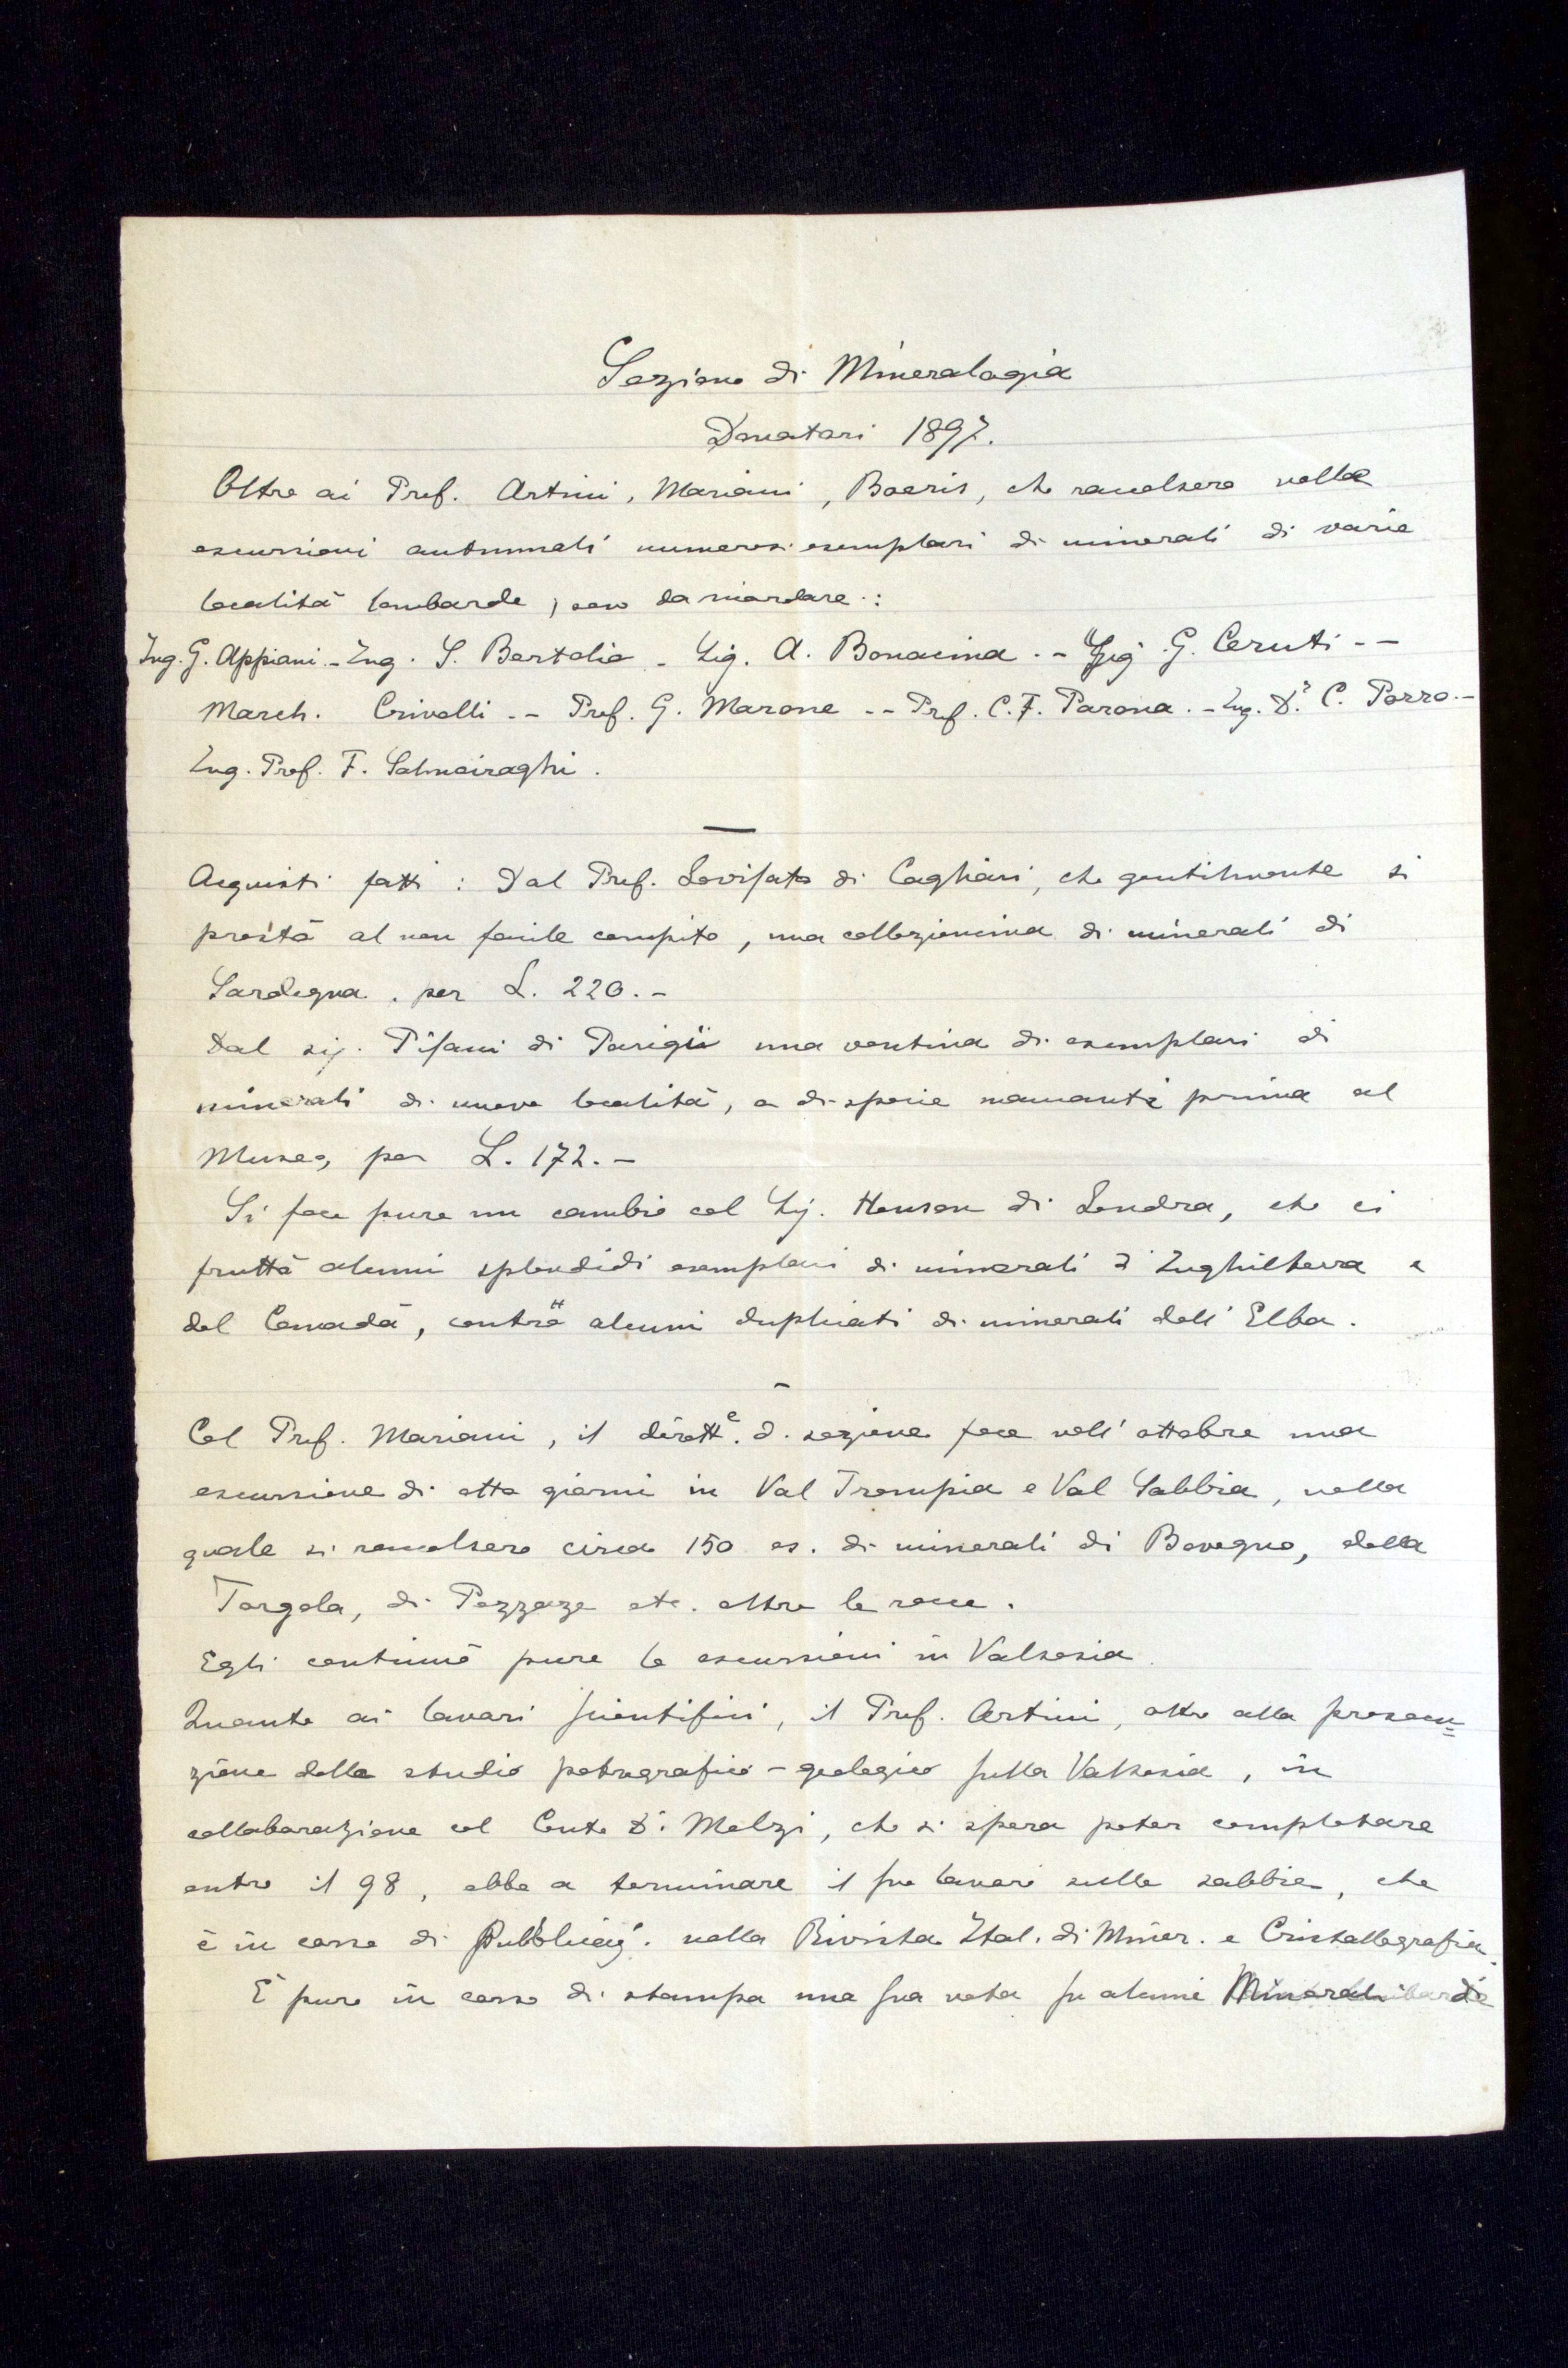 Sezione di Mineralogia
Donatori 1897.
Oltre ai Prof. Artini, Mariani, Boeris, che raccolsero nelle
escursioni autunnali numerosi esemplari di minerali di varie
località lombarde, sono da ricordare:
Ing. G. Appiani - Ing. S. Bertolio - Sig. A. Bonacina. - Sig. G. Ceruti. -
March. Crivelli. - Prof. G. Marone - - Prof. C. F. Parona. - Ing. D.r C. Porro. -
Ing. Prof. F. Salmoiraghi.
Acquisti fatti: Dal Prof. Lovisato di Cagliari, che gentilmente si
prestò al non facile compito, una collezioncina di minerali di
Sardegna, per L. 220. -
Dal sig. Pisani di Parigi una ventina di esemplari di
minerali di nuove località, o di specie mancanti prima al
Museo, per L. 172. -
Si fece pure un cambio col Sig. Henson di Londra, che ci
fruttò alcuni splendidi esemplari di minerali d'Inghilterra e
del Canadà, contro alcuni duplicati di minerali dell'Elba.
Col Prof. Mariani, il dirett.e d. sezione fece nell'ottobre una
escursione di otto giorni in Val Trompia e Val Sabbia, nella
quale si raccolsero circa 150 es. di minerali di Bovegno, della
Torgola, di Pezzaze etc. oltre le rocce.
Egli continuò pure le escursioni in Valsesia.
Quanto ai lavori scientifici, il Prof. Artini, oltre alla prosecu=
zione dello studio petrografico-geologico sulla Valsesia, in
collaborazione col Conte D.r Melzi, che si spera poter completare
entro il 98, ebbe a terminare il suo lavoro sulle sabbie, che
è in corso di Pubblicaz. nella Rivista Ital. di Miner. e Cristallografia.
È pure in corso di stampa una sua nota su alcuni Minerali